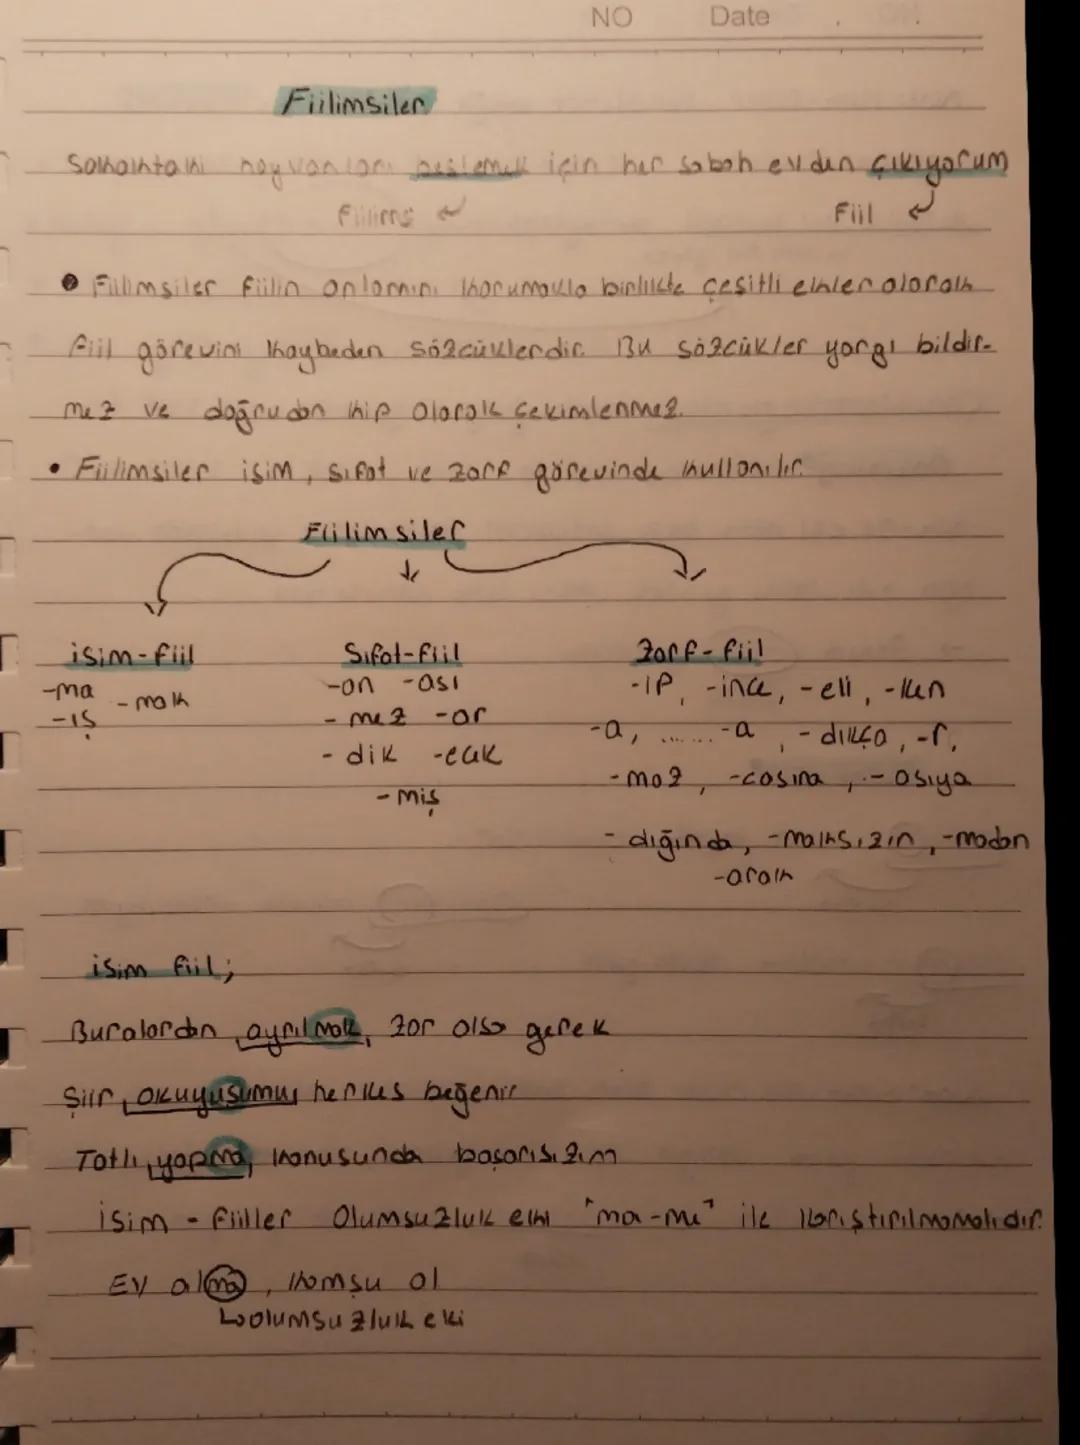 NO Date
Fiilimsiler
Sokaktaki hayvanları beslemek için her sabah evden çıkıyorum
Fiilims Fiil
• Fiilimsiler fiilin anlamını korumakla birlikte çeşitli ekler alarak
fiil görevini kaybeden sözcüklerdir. Bu sözcükler yargı bildir-
mez ve doğrudan kip alarak çekimlenmez.
• Fiilimsiler isim, sıfat ve zarf görevinde kullanılır.
Fiilimsiler
isim-fiil Sıfat-fiil Zarf-fiil
-ma -mak -an -ası -ıp, -ince, -eli, -ken
-ış -mez -ar -a, ...... -a, -dıkça, -r,
-dik -ecek -maz, -casına, -asıya
-miş
-dığında, -maksızın, -madan
-arak
isim fiil;
Buralardan ayrılmak, zor olsa gerek
Şiir okuyuşumu herkes beğenir
Tatlı yapma konusunda başarısızım
isim - fiiller Olumsuzluk eki "ma-me" ile karıştırılmamalıdır.
Ev alma, komşu al
↳olumsuzluk eki